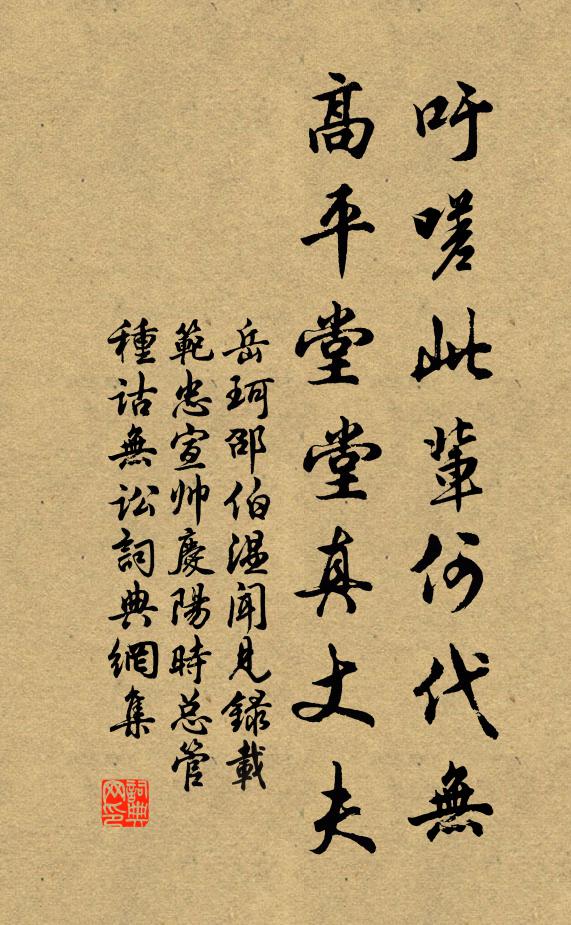 吁嗟此輩何代無
高平堂堂真丈夫
岳珂邵伯温聞見録載
範忠宣帅慶陽時总管
種詁無訟詞典網集
詞典网印